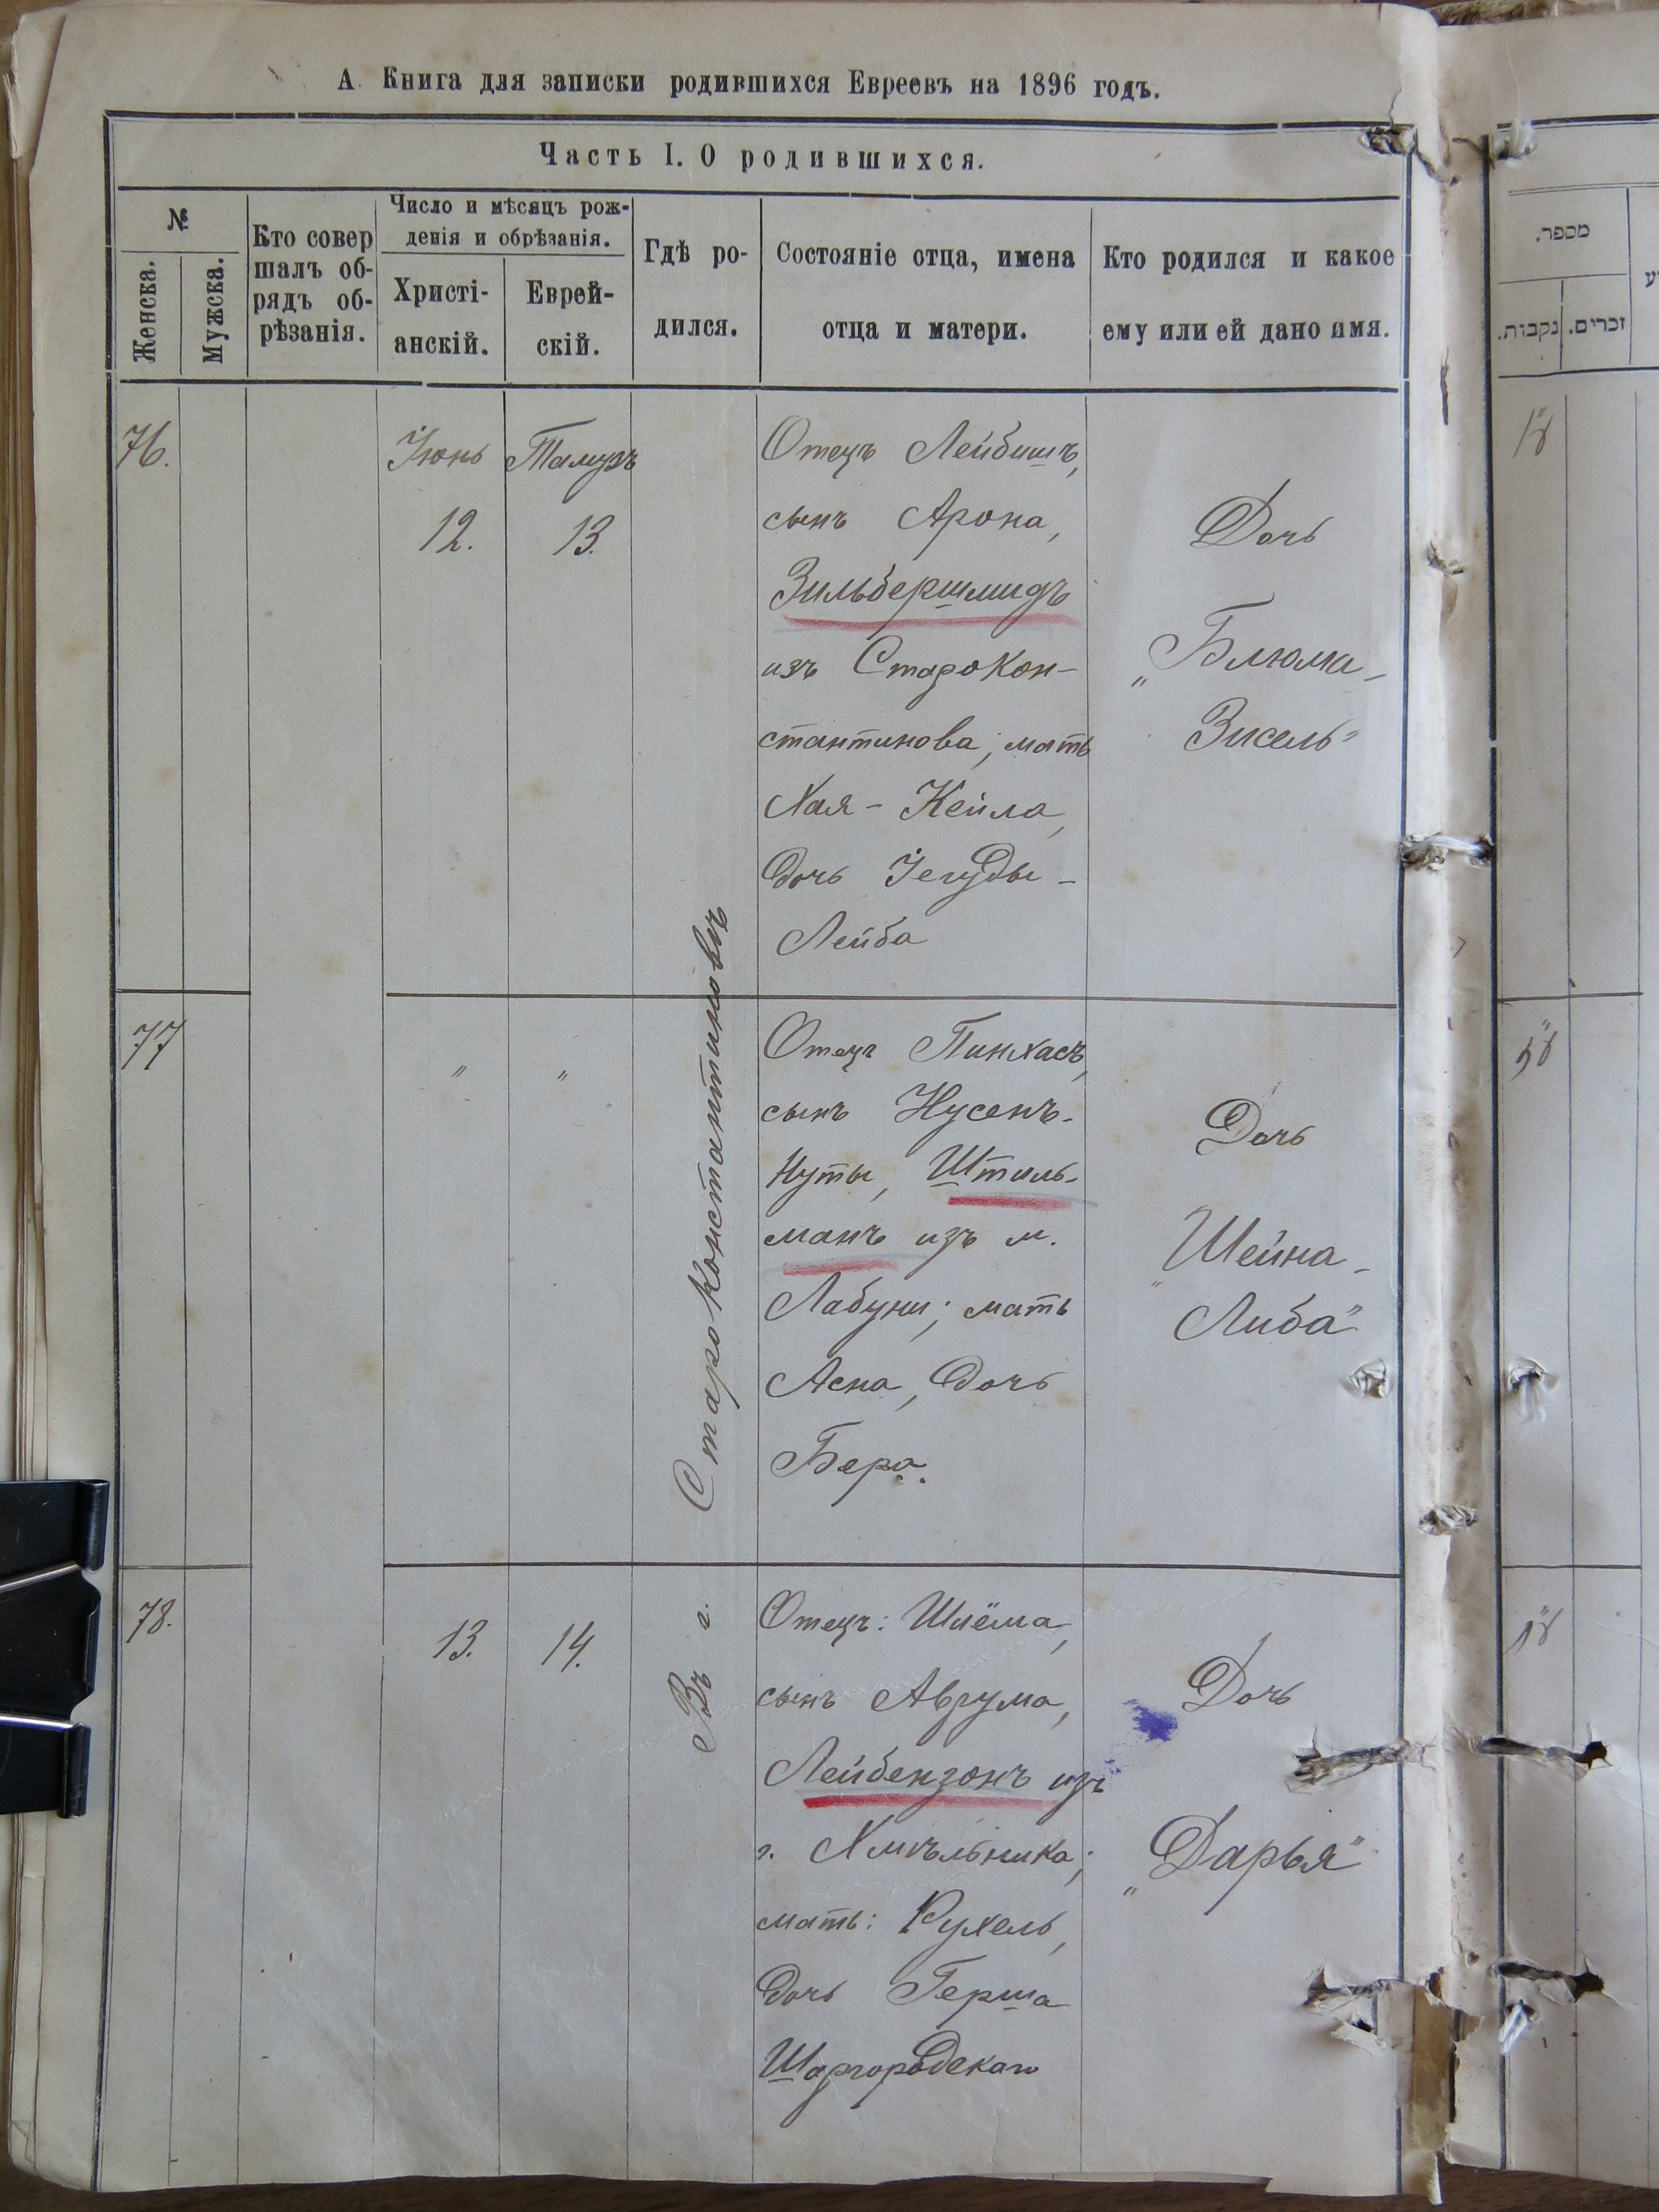 А. Книга для записки родившихся Евреевъ на 1896 годъ.
Часть I. О родившихся.
№
Женска.
Мужска.
Кто совер
шалъ об-
рядъ об-
рѣзанія.
Число и мѣсяцъ рож-
денія и обрѣзанія.
Христі-
анскій.
Еврей-
скій.
Гдѣ ро-
дился.
Состояніе отца, имена
отца и матери.
Кто родился и какое
ему или ей дано имя.
מספר.
זכרים.
נקבות.
76.
Іюнь
12.
Тамузъ
13.
Въ г. Староконстантиновѣ
Отецъ Лейбишъ,
сынъ Арона,
Зильбершмидъ
изъ Старокон-
стантинова; мать
Хая - Кейла,
дочь Іегуды -
Лейба
Дочь
„Блюма-
Зисель"
77
"
"
Отецъ Пинхасъ,
сынъ Нусенъ-
Нуты, Штиль-
манъ изъ м.
Лабуни; мать
Асна, дочь
Бера.
Дочь
„Шейна-
Либа"
78.
13.
14.
Отецъ: Шлёма,
сынъ Аврума,
Лейбензонъ изъ
г. Хмѣльника;
мать: Рухель,
дочь Герша
Шаргородскаго
Дочь
„Дарья"